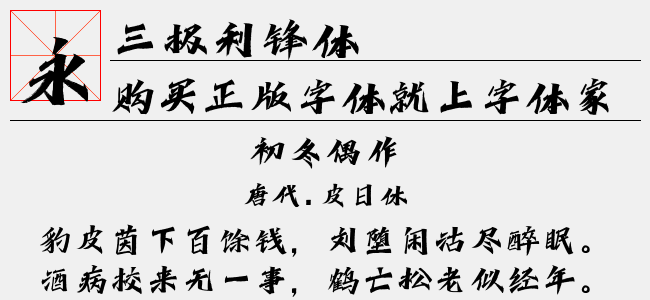 永
三极利锋体
购买正版字体就上字体家
初冬偶作
唐代.皮日休
豹皮茵下百馀钱，刘堕闲沽尽醉眠。
酒病校来无一事，鹤亡松老似经年。